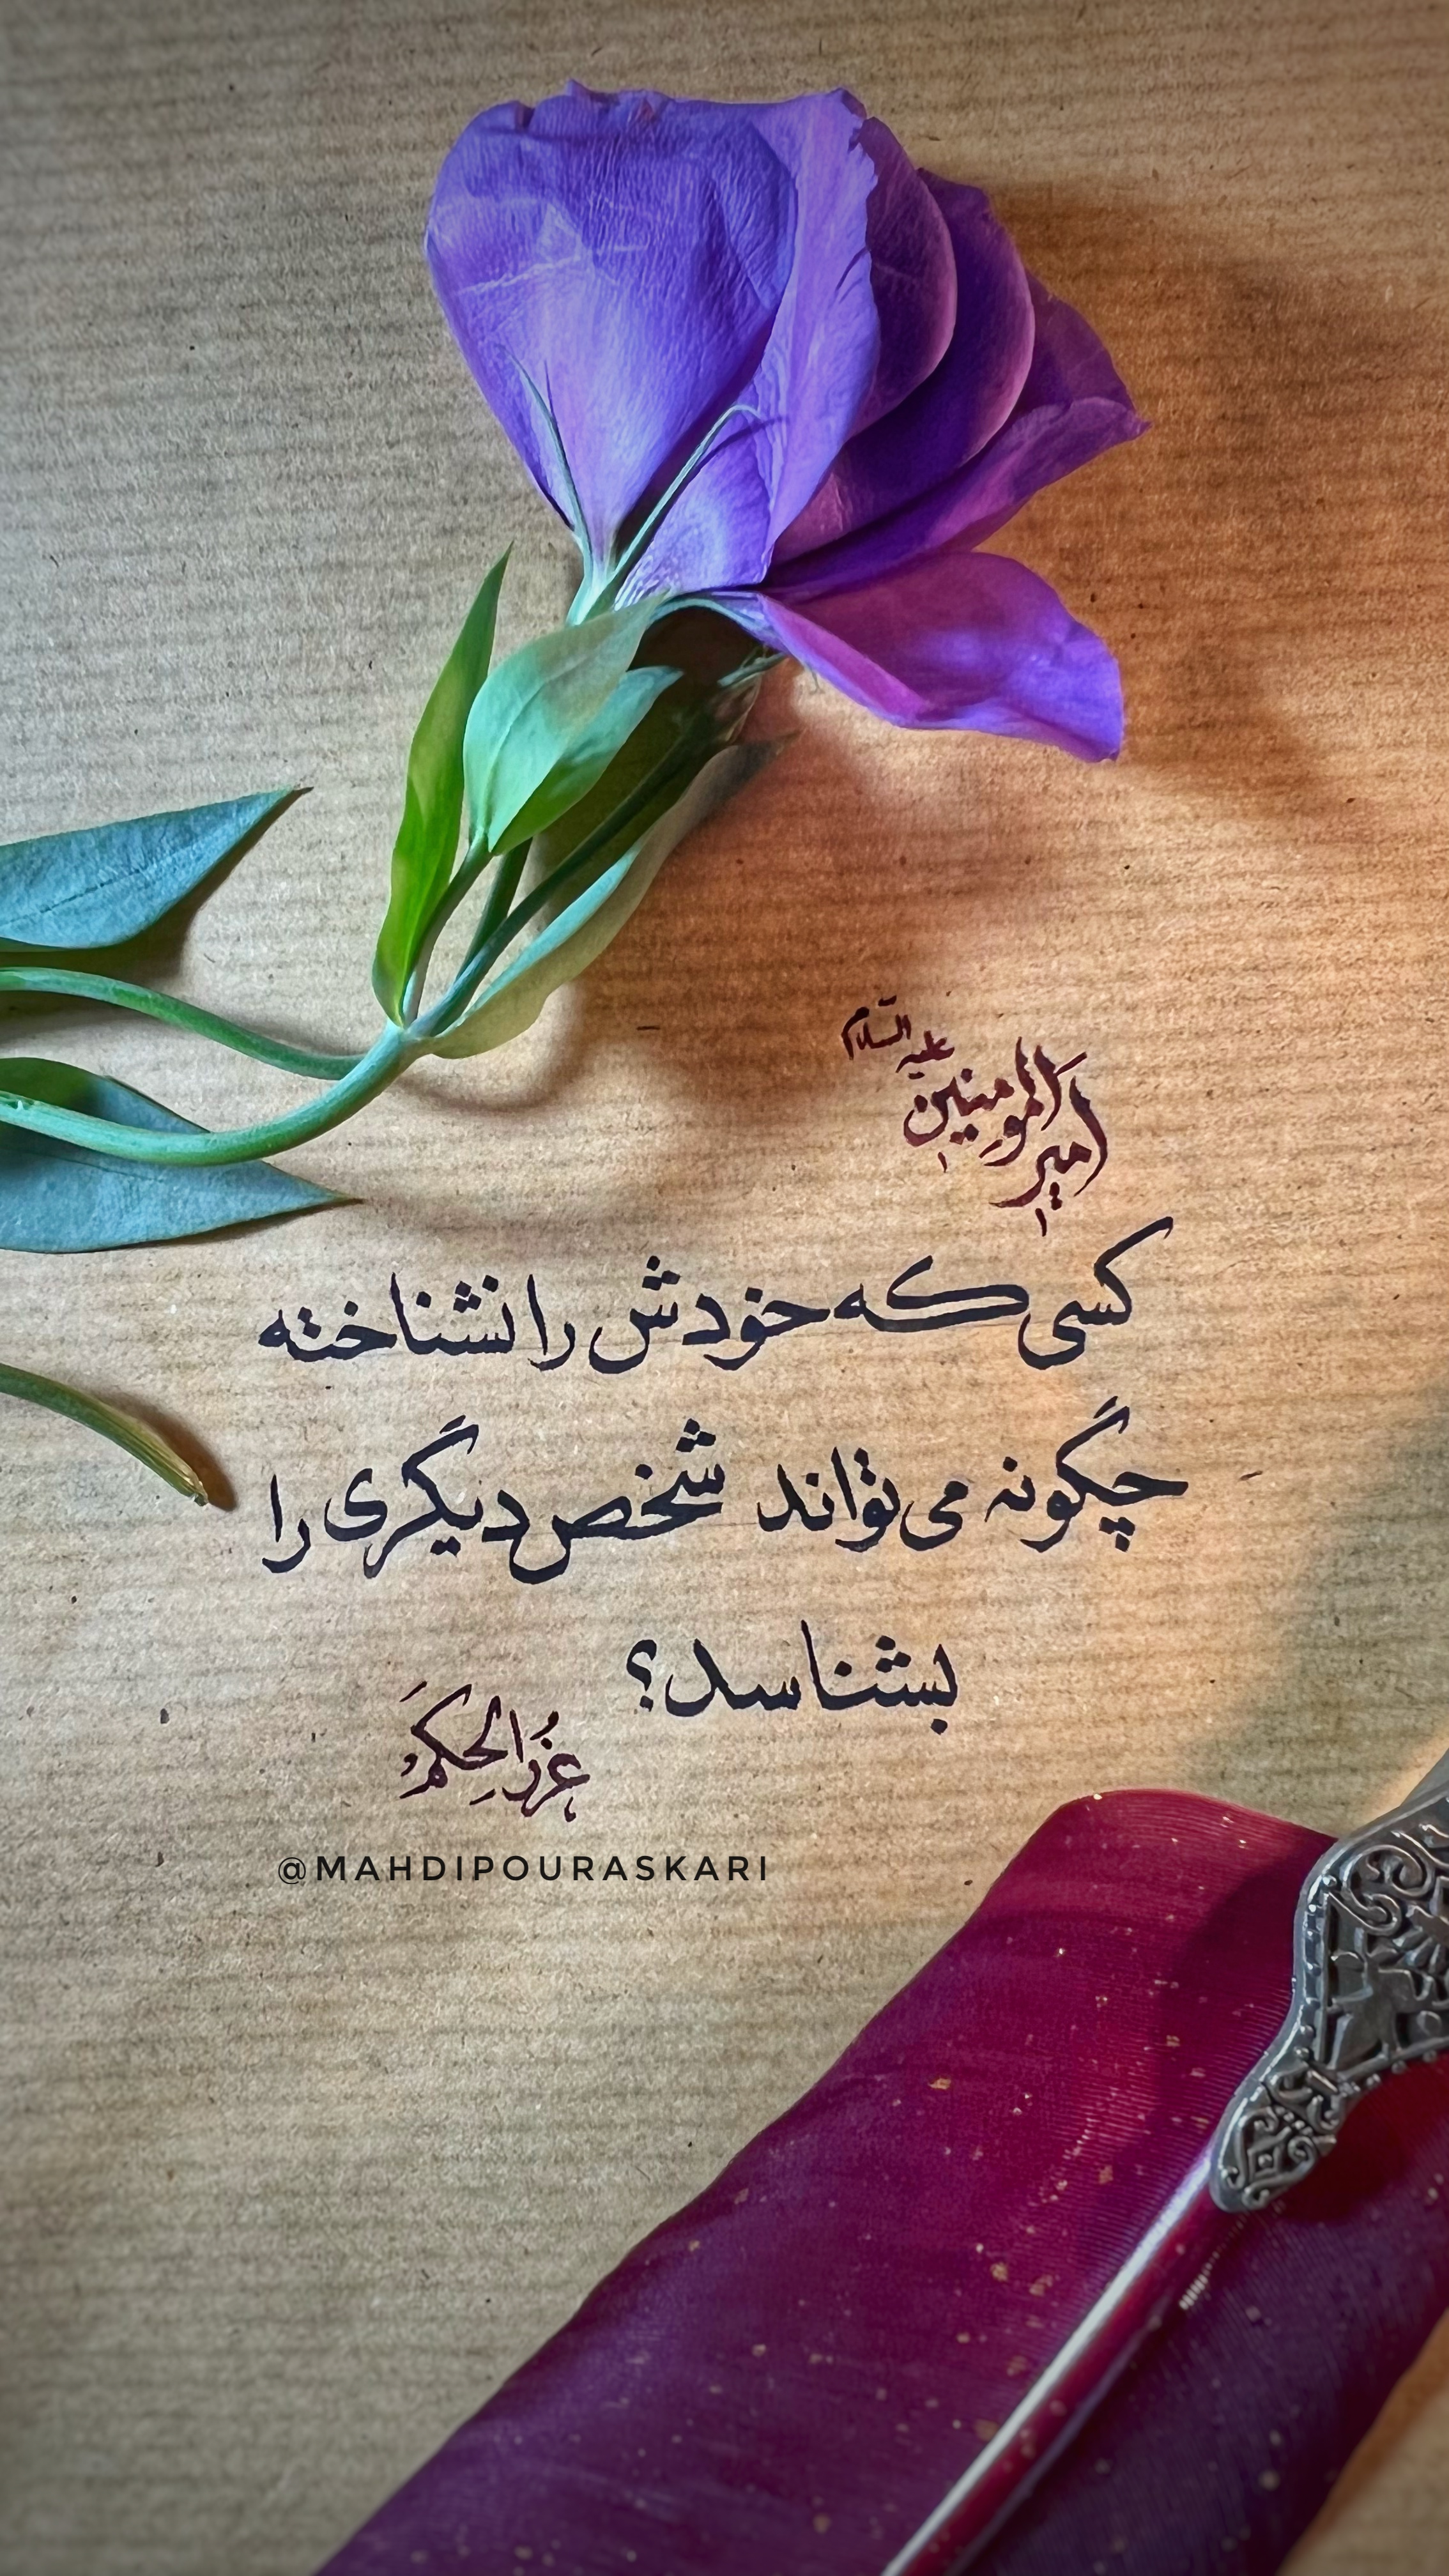 امیرالمومنین علیه السّلام
کسی که خودش را نشناخته
چگونه می تواند شخص دیگری را
بشناسد؟
غُرَرالحِکَمْ
@MAHDIPOURASKARI